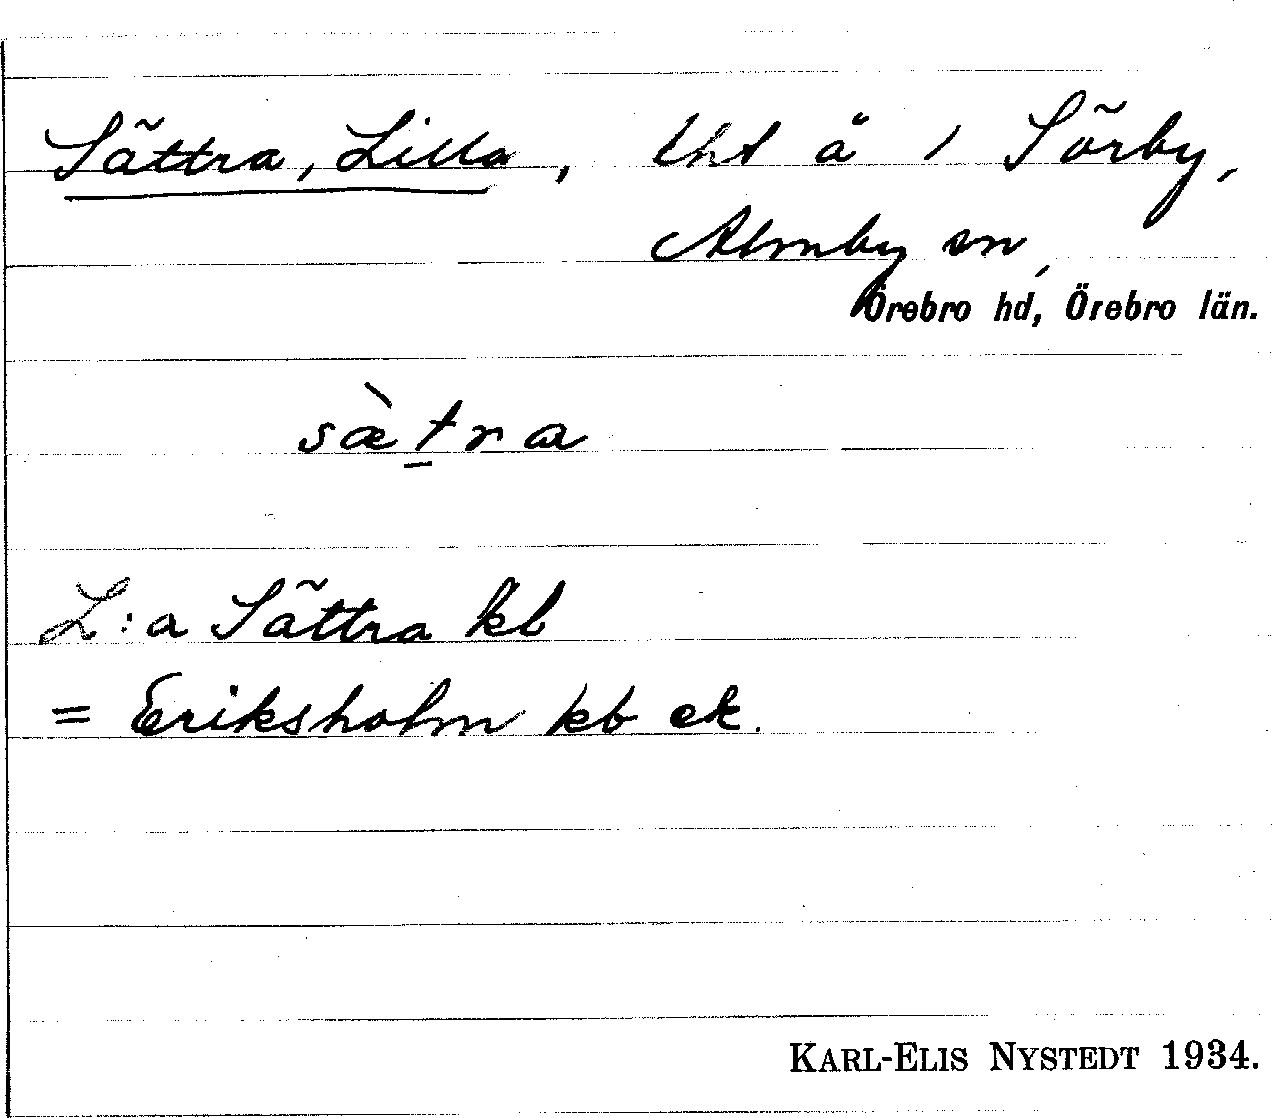 Sättra, Lilla, lht å 1 Sörby,
Almby sn,
Örebro hd, Örebro län.
sæ̀t̠ra
L:a Sättra kb
= Eriksholm kb ek.
KARL-ELIS NYSTEDT 1934.